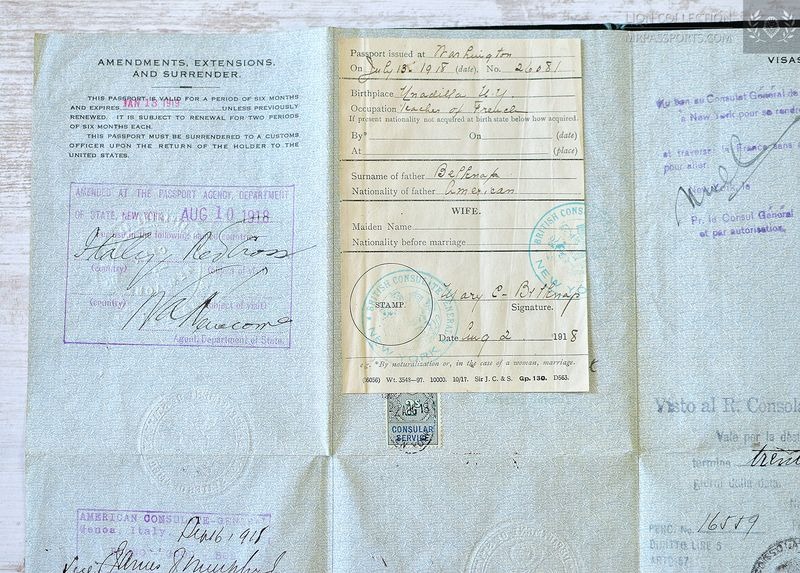 LION COLLECTION
PASSPORTS.COM
AMENDMENTS, EXTENSIONS,
AND SURRENDER.
THIS PASSPORT IS VALID FOR A PERIOD OF SIX MONTHS
AND EXPIRES JAN 15 1919 UNLESS PREVIOUSLY
RENEWED. IT IS SUBJECT TO RENEWAL FOR TWO PERIODS
OF SIX MONTHS EACH.
THIS PASSPORT MUST BE SURRENDERED TO A CUSTOMS
OFFICER UPON THE RETURN OF THE HOLDER TO THE
UNITED STATES.
AMENDED AT THE PASSPORT AGENCY, DEPARTMENT
OF STATE, NEW YORK AUG 10 1918
in the following
Italy Red Cross
(country) (object of visit)
(country) (object of visit)
Agent, Department of State.
AMERICAN CONSULATE-GENERAL
Genoa, Italy. Dec 16, 1918
James
Passport issued at Washington
On July 15 1918 (date). No. 26081
Birthplace Unadilla N.Y
Occupation Teacher of French
If present nationality not acquired at birth state below how acquired.
By* On (date)
At (place)
Surname of father Belknap
Nationality of father American
WIFE.
Maiden Name
Nationality before marriage
BRITISH CONS
NEW YO
STAMP.
BRITISH CONSULATE GENERAL
NEW YORK
Mary C. Belknap
Signature.
Date Aug 2 1918
e.g. *By naturalization or, in the case of a woman, marriage.
(6056) Wt. 3548-97. 10000. 10/17. Sir J. C. & S. Gp. 130. D563.
2 AUG 18
CONSULAR
SERVICE
VISAS
au Consulat Général de
à New York pour se rendre
et traverser la France sans
pour aller
New York, le
Pr. le Consul Général
et par autorisation,
Visto al R. Consola
Vale per la dest
termine trenta
giorni dalla data.
PERC. No. 16559
DIRITTO LIRE 5